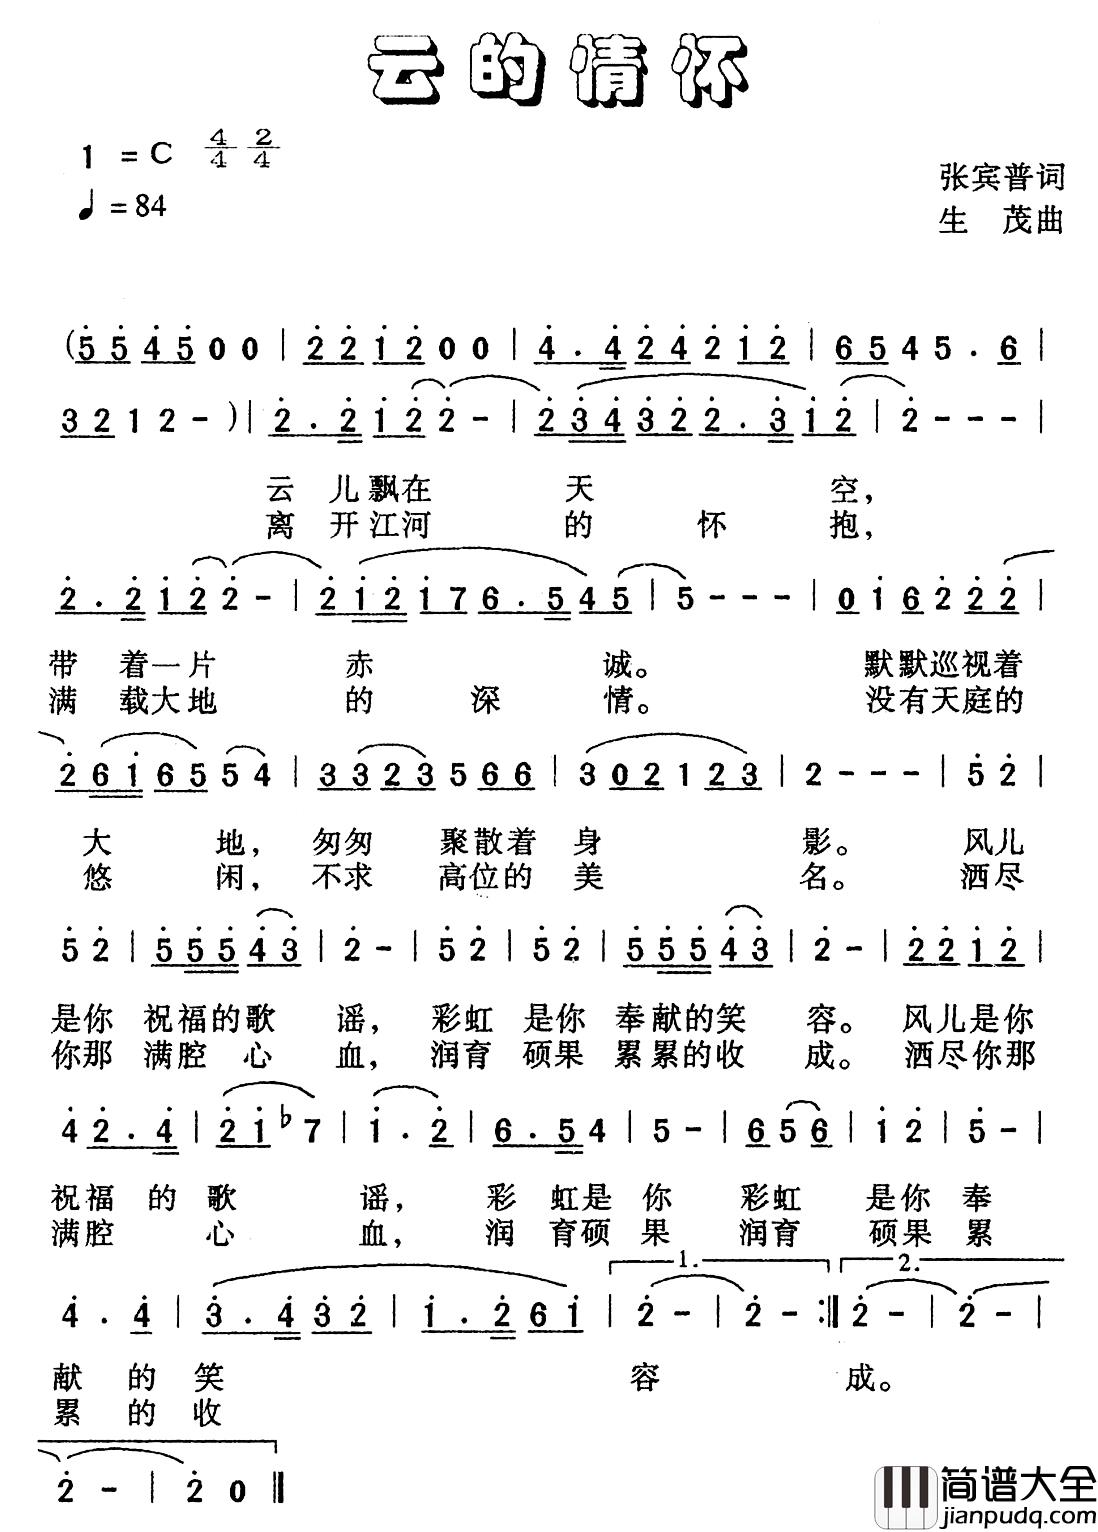 云的情怀
1 = C 4/4 2/4
♩= 84
张宾普词
生 茂曲
(5 5 4 5 0 0 | 2 2 1 2 0 0 | 4 . 4 2 4 2 1 2 | 6 5 4 5 . 6 |
3 2 1 2 - ) | 2 . 2 1 2 2 - | 2 3 4 3 2 2 . 3 1 2 | 2 - - - |
云 儿 飘在 天 空,
离 开 江河 的 怀 抱,
2 . 2 1 2 2 - | 2 1 2 1 7 6 . 5 4 5 | 5 - - - | 0 1 6 2 2 2 |
带 着一 片 赤 诚。 默默巡视着
满 载大 地 的 深 情。 没有天庭的
2 6 1 6 5 5 4 | 3 3 2 3 5 6 6 | 3 0 2 1 2 3 | 2 - - - | 5 2 |
大 地, 匆匆 聚散着 身 影。 风儿
悠 闲, 不求 高位的 美 名。 洒尽
5 2 | 5 5 5 4 3 | 2 - | 5 2 | 5 2 | 5 5 5 4 3 | 2 - | 2 2 1 2 |
是你 祝福的歌 谣, 彩虹 是你 奉献的笑 容。 风儿是你
你那 满腔 心 血, 润育 硕果 累累的收 成。 洒尽你那
4 2 . 4 | 2 1 ♭7 | 1 . 2 | 6 . 5 4 | 5 - | 6 5 6 | 1 2 | 5 - |
祝福 的 歌 谣, 彩 虹是 你 彩虹 是你 奉
满腔 心 血, 润 育硕 果 润育 硕果 累
1. 2.
4 . 4 | 3 . 4 3 2 | 1 . 2 6 1 | 2 - | 2 - :‖ 2 - | 2 - |
献 的 笑 容 成。
累 的 收
2 - | 2 0 ‖
简谱大全
jianpudq.com